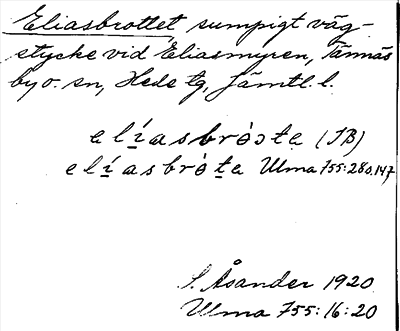 Eliasbrottet sumpigt väg-
stycke vid Eliasmyren, Tännäs
by o. sn, Hede tg, Jämtl. l.
elíasbròɔtɐ (JB)
elíasbròtɐ Ulma 755:28 o. 147
S. Åsander 1920
Ulma 755:16:20